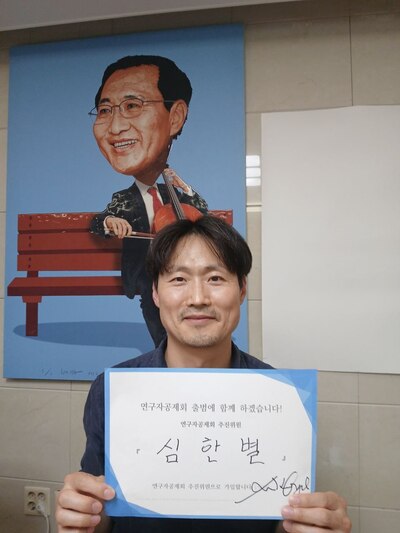 연구자공제회 출범에 함께 하겠습니다!
연구자공제회 추진위원
『 심 한 별 』
연구자공제회 추진위원으로 가입합니다